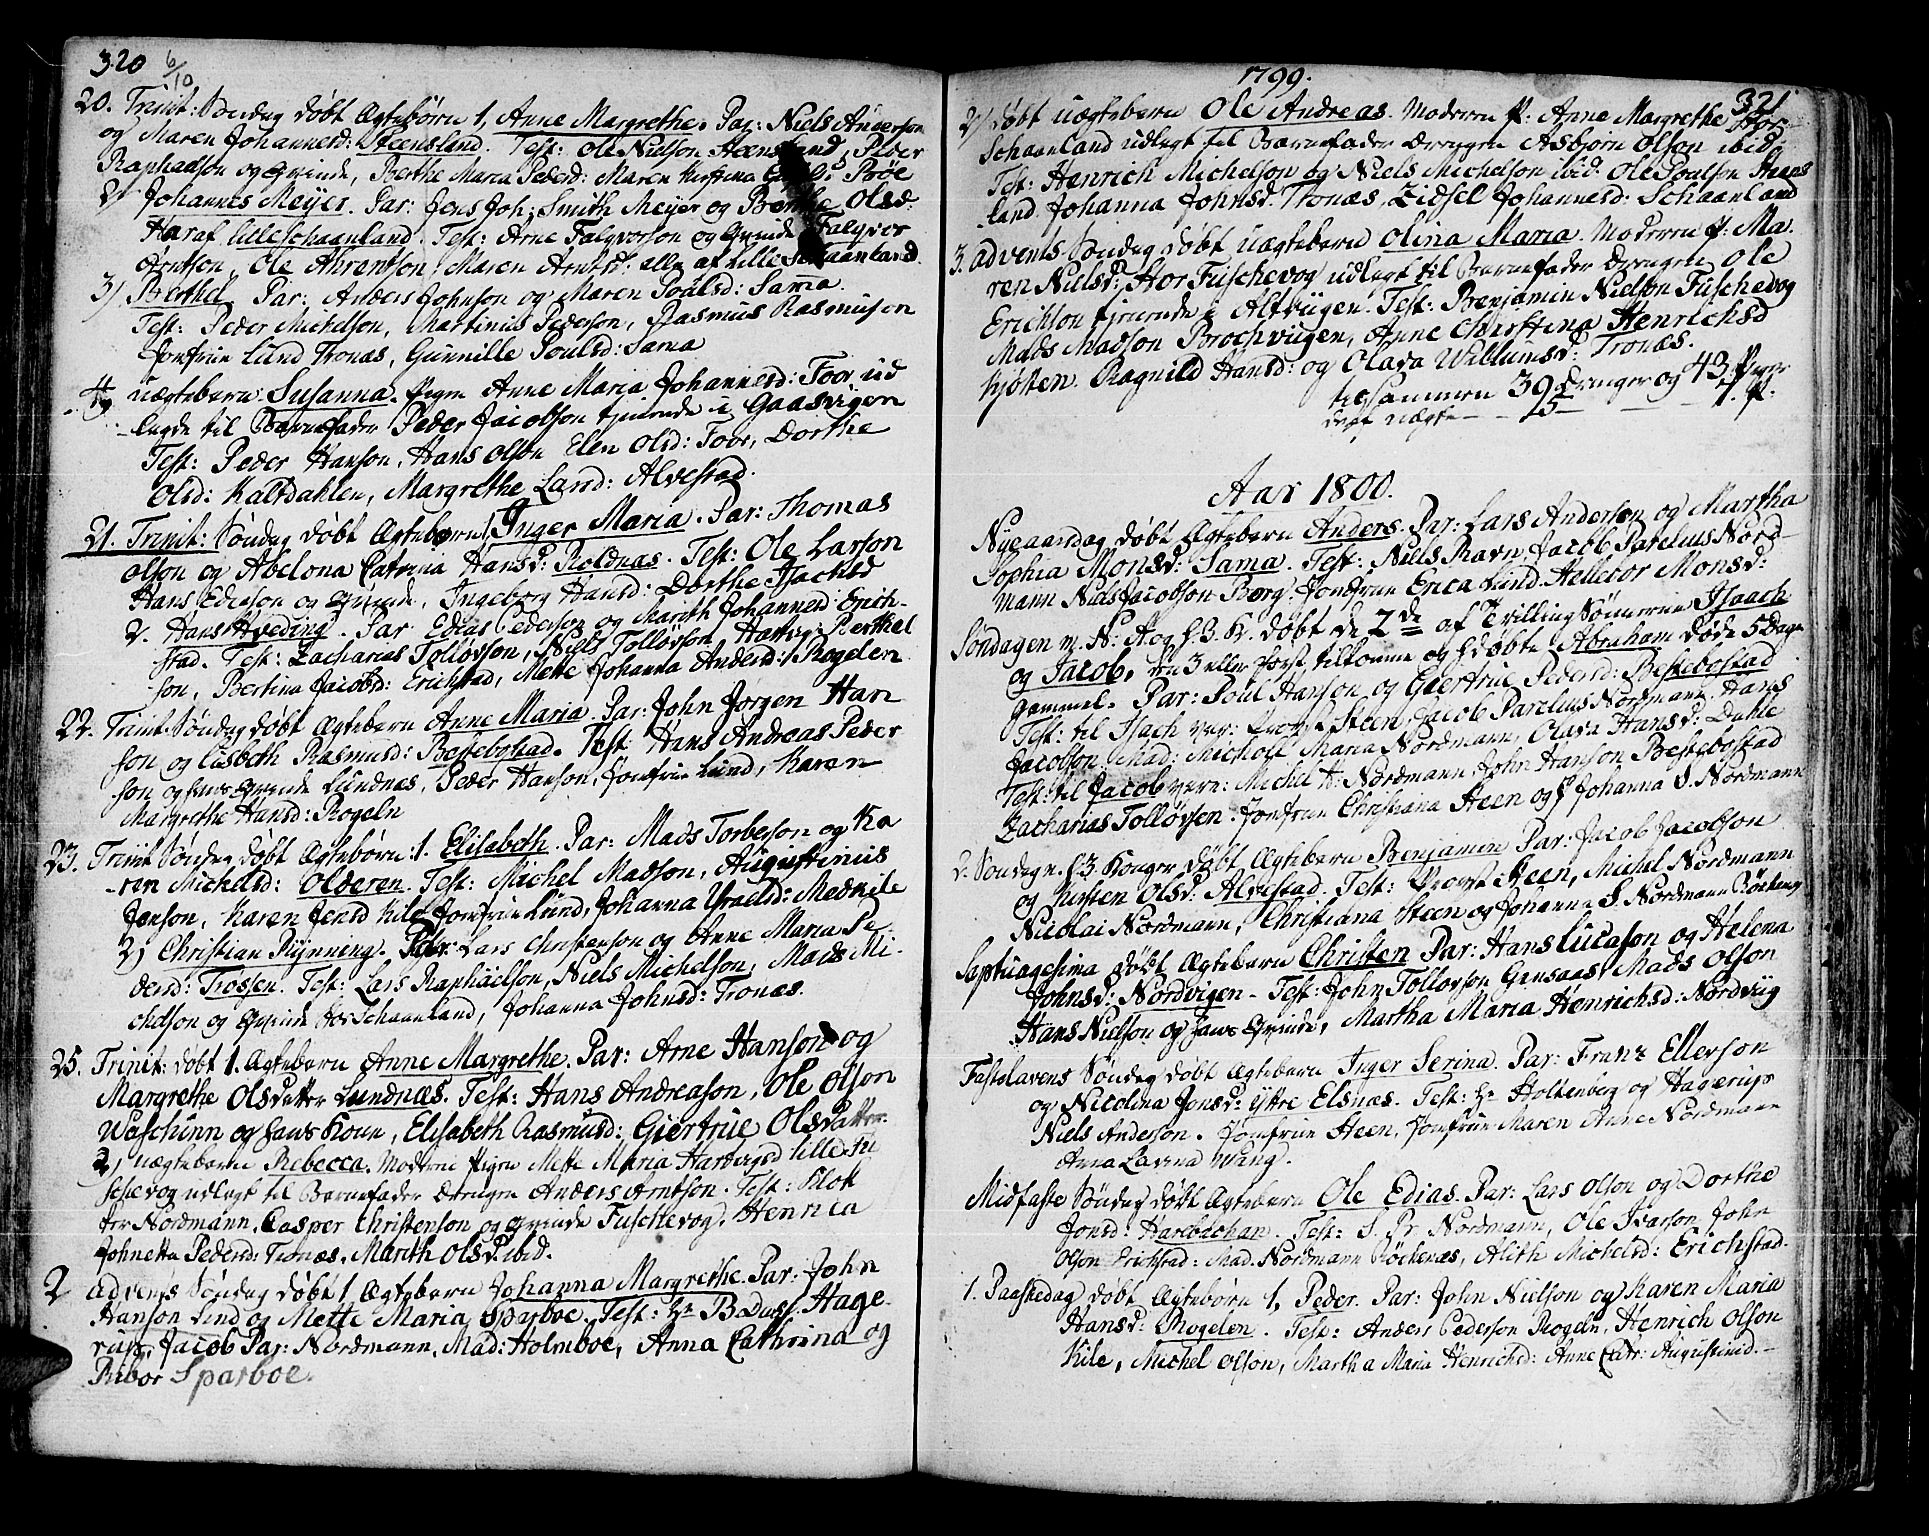 320 6/10
20. Trinit: Søndag døbt Ægtebørn 1, Anne Margrethe. Par: Niels Anderson
og Maren Johannesd: Steensland. Test: Ole Nielson Steensland, Peder
Raphaelson og Qvinde, Berthe Maria Pedersd: Maren Kirstina Broe
2) Johannes Meyer. Par: Jens Joh: Smith Meyer og Berthe Olsd:
Haraf lille Schaanland. Test: Arne Falqvorson og Qvinde, Falqvor
Arntson, Ole Ahrentson, Maren Arntsd: alle af lille Schaanland.
3) Berthel. Par: Anders Johnson og Maren Poulsd: Sama.
Test: Peder Michelson, Martinus Pederson, Rasmus Rasmuson
Jomfrue Lund Tronæs, Gunnille Poulsd: Sama
4, uægtebarn: Susanna. Pigen Anne Maria Johannesd: Foor ud
lagde til Barnefader Peder Jacobson tjenende i Gaasvigen
Test: Peder Hanson, Hans Olson Elen Olsd: Foor, Dorthe
Olsd: Kaltdahlen, Margrethe Larsd: Alvestad.
21. Trinit: Søndag døbt Ægtebørn 1, Inger Maria. Par: Thomas
Olson og Abelona Catrina Hansd: Roldnæs. Test: Ole Larson
Hans Edieson og Qvinde, Ingeborg Hansd: Dorthe Isachsd
2. Hans Hveding. Par Edias Pederson og Marith Johannesd: Erich-
stad. Test: Zacharias Tolløvsen, Niels Tolløvson, Hartvig Berthel
son, Bertina Jacobsd: Erichstad, Mette Johanna Andersd: Rogelen
22. Trinit: Søndag døbt Ægtebarn Anne Maria. Par: John Jørgen Han
son og Lisbeth Rasmusd: Bestebostad. Test: Hans Andreas Peder
son og hans Qvinde Lundnæs, Peder Hanson, Jomfrue Lund, Karen
Margrethe Hansd: Rogeln
23. Trinit Søndag døbt Ægtebørn: 1. Elisabeth. Par: Mads Torberson og Ka
ren Michelsd: Olderen. Test: Michel Madson, Augustinus
Jenson, Karen Jensd Kile Jomfrue Lund, Johanna Israelsd: Medkile
2) Christian Rynning. Par: Lars Christenson og Anne Maria Pe
dersd: Trossen. Test: Lars Raphaelson, Niels Michelson, Mads Mi-
chelson og Qvinde Stor Schaanland, Johanna Johnsd: Tronæs.
25. Trinit: døbt 1. Ægtebarn Anne Margrethe. Par: Arne Hanson og
Margrethe Olsdatter Lundnæs. Test: Hans Andreason, Ole Olson
Waschinn og hans Kone, Elisabeth Rasmusd: Giertrue Olsdatter.
2) uægtebarn Rebecca. Moderne Pigen Mette Maria Hartvigsd lille Fu
schevog udlagt til Barnefader Drengen Anders Arntson. Test: Klok
ker Nordmann, Casper Christenson og Qvinde Fuschevog, Henrica
Johnetta Pedersd: Tronæs. Marith Olsd. ibid.
2 Advents Søndag døbt 1, Ægtebarn Johanna Margrethe. Par: John
Hanson Lind og Mette Maria Sparboe. Test: Hr Hage-
rup, Jacob Par: Nordmann, Mad: Holmboe, Anna Cathrina og
Ribor Sparboe.
1799.
321
2) døbt uægtebarn Ole Andreas. Moderen P: Anne Margrethe
Schaanland udlagt til Barnefader Drengen Asbjørn Olson ibid:
Test: Henrich Michelson og Niels Michelson ibid: Ole Poulson Staans
land Johanna Johnsd. Tronæs, Zidsel Johannesd: Schaanland
3. Advents Søndag døbt uægtebarn Olina Maria. Moderen P: Ma
ren Nielsd: Stor Fuschevog udlagt til Barnefader Drengen Ole
Erichson tjenende i Altvigen. Test: Benjamin Nielson Fuschevog
Mads Madson Brochvigen, Anne Christina Henrichsd
Kjøsten. Ragnild Hansd: og Olava Willumsd: Tronæs.
tilsammen 39 Drenger og 43 Piger
deraf uægte - - 5 - - 7. P.
Aar 1800.
Nyeaarsdag døbt Ægtebarn Anders. Par: Lars Anderson og Martha
Sophia Monsd: Sama. Test: Niels Ravn, Jacob Parelius Nord-
mann Niels Jacobson Berg. Jomfrue Erica Lund. Hellecor Monsd:
Søndagen m. N: A. og H. 3. K. døbt de 2de af Trilling Sønnerne Isaach
og Jacob, den 3 eller først tilkomne og hdøbte Abraham døde 5 Dage
gammel. Par: Poul Hanson og Giertrue Pedersd: Bestebostad
Test: til Isach var: Provst Steen, Jacob Parelius Nordmann, Hans
Jacobson, Mad: Michoel Maria Nordmann, Olava Hansd: Dahle
Test: til Jacob vare: Michel H: Nordmann, John Hanson Bestebostad
Zacharias Tolløvsen. Jomfrue Christiana Steen og Johanna S. Nordmann
2. Søndag n. H. 3. Konger døbt Ægtebarn Benjamin Par: Jacob Jacobson
og Kirsten Olsd: Alvestad. Test: Provst Steen, Michel Nordmann
Nicolai Nordmann, Christiana Steen og Johanne S. Nordmann Røckenes
Septuagesima døbt Ægtebarn Christen Par: Hans Lucason og Helena
Johnsd: Nordvigen - Test: John Tolløvson Grasaas, Mads Olson
Hans Nielson og hans Qvinde, Martha Maria Henrichsd: Nordvig
Fastelavens Søndag døbt Ægtebarn Inger Serina. Par: Franz Ellerson
og Nicolina Jensd: Yttre Elsnæs. Test: Hr Holtenberg og Hagerup
Niels Anderson. Jomfrue Steen, Jomfrue Maren Anne Nordmann
Anna Lavina Wang.
Midfaste Søndag døbt Ægtebarn Ole Edias. Par: Lars Olson og Dorthe
Jonsd: Harebechan. Test: S. Pr Nordmann, Ole Ivarson, John
Olson Erichstad: Mad. Nordmann Røckenæs, Alith Michelsd: Erichstad.
1. Paaskedag døbt Ægtebørn 1, Peder. Par: John Nielson og Karen Maria
Hansd: Rogelen. Test: Anders Pederson Rogeln, Henrich Olson
Kile, Michel Olson, Martha Maria Henrichsd: Anne Catr: Augustinusd.-